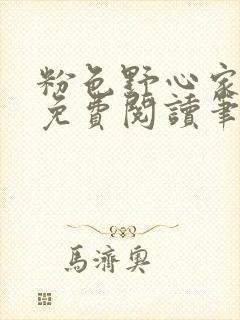 粉色野心家
免費閱讀筆
馬濟奧